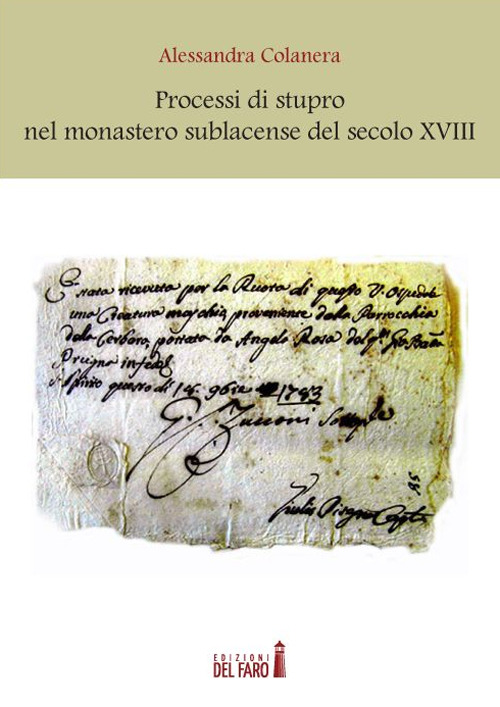 Alessandra Colanera
Processi di stupro
nel monastero sublacense del secolo XVIII
È stata ricevuta per la Ruota di questo V. Ospedale
una Creatura maschia, proveniente dalla Parrocchia
della Cerbara, portata da Angela Rosa del qm
Prugna in fede
questo di 14. 9bre 1783
Zucconi
EDIZIONI
DEL FARO